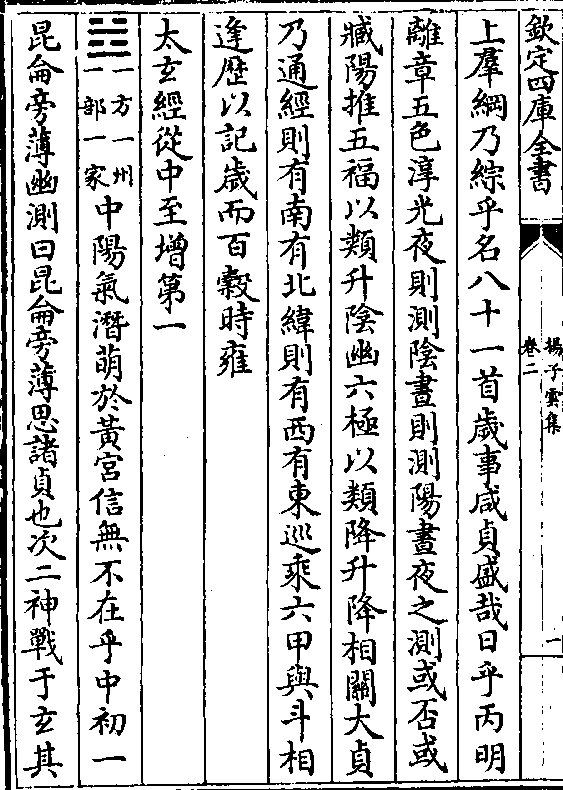 欽定四庫全書
揚子雲集
卷二
一
上羣綱乃綜乎名八十一首歲事咸貞盛哉日乎丙明
離章五色淳光夜則測陰晝則測陽晝夜之測或否或
臧陽推五福以類升陰幽六極以類降升降相關大貞
乃通經則有南有北緯則有西有東巡乘六甲與斗相
逢歷以記歲而百穀時雍
太玄經從中至增第一
一方一州
一部一家
中陽氣潛萌於黃宮信無不在乎中初一
昆侖旁薄幽測曰昆侖旁薄思諸貞也次二神戰于玄其